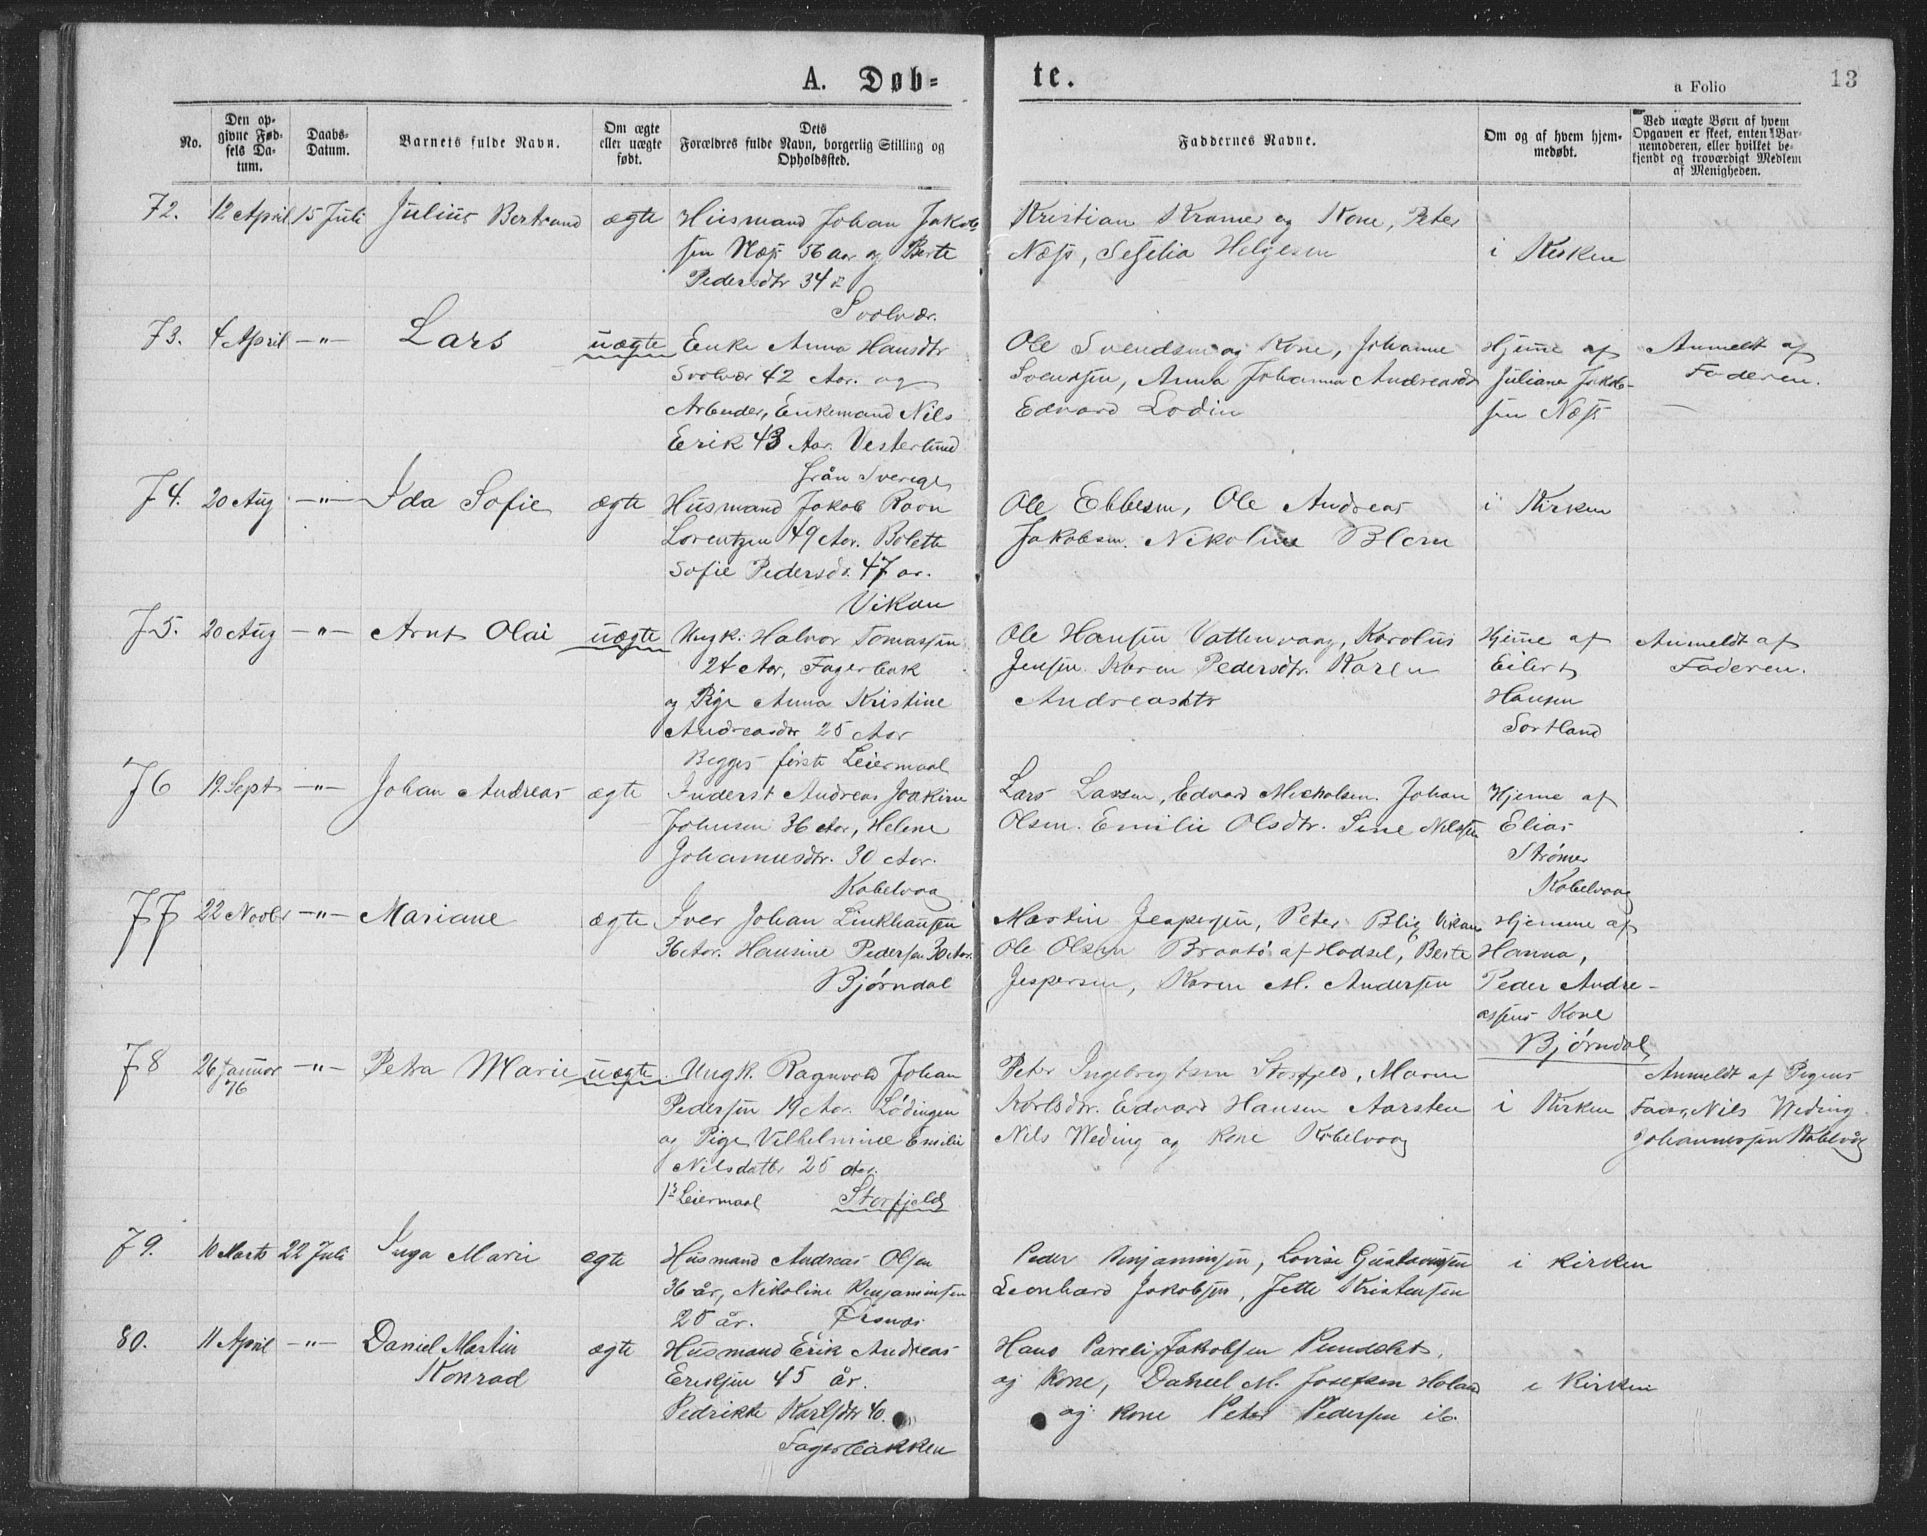 A. Døb-
te.
a Folio
13
No.
Den op-
givne Fød-
sels Da-
tum.
Daabs-
Datum.
Barnets fulde Navn.
Om ægte
eller uægte
født.
Dets
Forældres fulde Navn, borgerlig Stilling og
Opholdssted.
Faddernes Navne.
Om og af hvem hjem-
medøbt.
Ved uægte Børn af hvem
Opgaven er skeet, enten Bar-
nemoderen, eller hvilket be-
kjendt og troværdigt Medlem
af Menigheden.
72. 12 April 15 Juli Julius Bertrand ægte
Husmand Johan Jakob-
sen Næss 56 aar og Berte
Pedersdtr 34
Svolvær.
Kristian Kramer og Kone, Peter
Næss, Sesilia Helgesen
i Kirken
73. 4 April -"- Lars uægte
Enke Anna Hansdtr
Svolvær 42 Aar. og
Arbeider, Enkemand Nils
Erik 43 Aar. Vesterlund
från Sverige
Ole Svendsen og Kone, Johanne
Svensen, Anna Johanna Andreasdtr
Edvard Lodin
Hjeme af
Juliana Jakob-
sen Næss
Anmeldt af
Faderen.
74. 20 Aug -"- Ida Sofie ægte
Husmand Jakob Ravn
Lorentzen 49 Aar. Bolette
Sofie Pedersdr. 47 ar.
Vikan
Ole Ebbesen, Ole Andreas
Jakobsen. Nikoline Blom
i Kirken
75. 20 Aug -"- Arnt Olai uægte
Ungk. Halvor Tomassen
24 Aar, Fagerbak
og Pige Anna Kristine
Andreasdtr 25 Aar
Begges første Leiermaal
Ole Hansen Vattenvaag, Karolus
Jensen. Karen Pedersdtr. Karen
Andreasdtr
Hjeme af
Eilert
Hansen
Sortland
Anmeldt af
Faderen.
76 19 Sept -"- Johan Andreas ægte
Inderst Andreas Joakim
Johnsen 36 Aar, Helene
Johannesdtr. 30 Aar.
Kabelvaag
Lars Larsen, Edvard Mickalsen. Johan
Olsen. Emilie Olsdtr. Sine Nilssen
Hjeme af
Elias
Strømer
Kabelvaag
77 22 Novbr -"- Mariane ægte
Iver Johan Linkhausen
36 Aar. Hansine Pedersen 30 Aar.
Bjørndal
Martin Jespersen, Peter Blix Vikan
Ole Olsen Braatø af Hadsel, Berte
Jespersen, Karen M. Andersen
Hjemme af
Hanna,
Peder Andre-
assens Kone
Bjørndal,
78 26 Januar -"- Petra Marie uægte
76
Ungk. Ragnvald Johan
Pedersen 19 Aar. Lødingen
og Pige Vilhelmine Emilie
Nilsdatter 25 Aar.
1ste Leiermaal Storfjeld
Peter Ingebrigtsen Storfjeld, Maren
Karlsdtr. Edvard Hansen Aarsten
Nils Weding og Kone Kabelvaag
i Kirken
Anmeldt af Pigens
Fader, Nils Weding
Johannessen Kabelvåg
79. 10 Marts 22 Juli Inga Marie egte
Husmand Andreas Olsen
36 år, Nikoline Benjaminsen
25 år. Ørsnæs
Peder Benjaminsen, Lovise Gustavsen
Leonhard Jakobsen, Jette Kristensen
i kirken
80. 11 April -"- Daniel Martin
Konrad
ægte
Husmand Erik Andreas
Eriksen 45 år.
Pedrikke Karlsdtr 40
Fagerbakken
Hans Pareli Jakobsen
og Kone, Daniel M. Josefsen Holand
og kone Peter Pedersen ib.
i Kirken